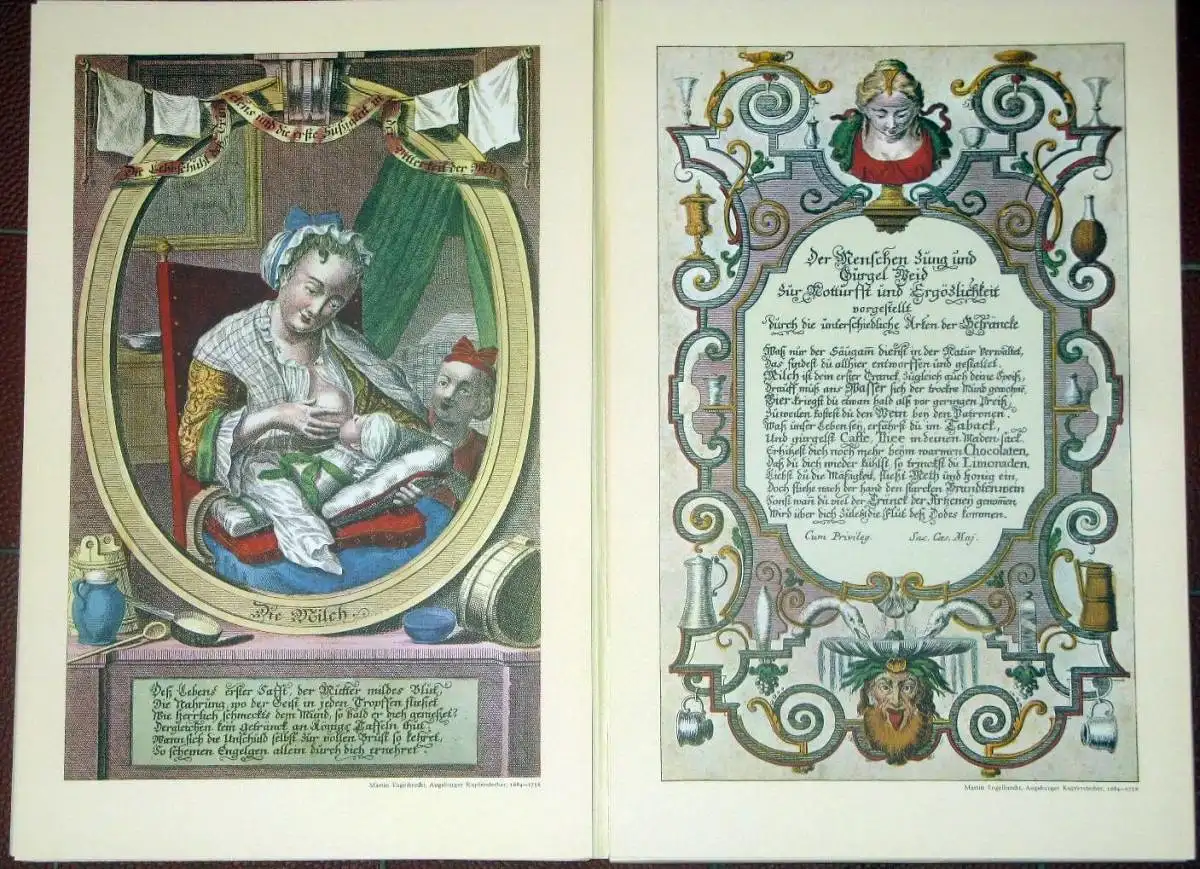 Die Milch
Deß Lebens erster Safft, der Mutter mildes Blut,
Die Nahrung, wo der Geist in jeden Tropffen fließet
Wie herrlich schmeckts dem Mund, so bald er dich genießet?
Dergleichen kein Getränck an Königs Taffeln thut.
Wann sich die Unschuld selbst zur vollen Brust so kehret,
So scheinen Engelgen allein durch dich ernehret.
Martin Engelbrecht, Augsburger Kupferstecher, 1684–1756
Der Menschen Zung und
Gurgel Weid
Zur Notturfft und Ergözlichkeit
vorgestellt
durch die unterschiedliche Arten der Geträncke
Waß nur der Säugam dienst in der Natur verwaltet,
Das findest du allhier entworffen und gestaltet.
Milch ist dein erster Tranck, zugleich auch deine Speiß,
Drauff muß ans Wasser sich der trockne Mund gewöhnen,
Bier kriegst du etwan bald alß vor geringen Preiß,
Zuweilen kostest du den Wein bey den Patronen.
Waß unser Leben sey, erfährst du im Taback,
Und gurgelst Caffe, Thee in deinen Maden-sack.
Erhitzest dich noch mehr beym warmen Chocolaten,
Daß du dich wieder kühlst so trinckst du Limonaden,
Liebst du die Mäßigkeit, fließt Meth und Honig ein,
Doch fliehe nach der hand den starcken Brandtenwein
Sonst wan du viel der Tranck der Artzeney genommen,
Wird über dich zuletz die Flut deß Todes kommen.
Cum Privileg. Sac. Cæs. Maj.
Martin Engelbrecht, Augsburger Kupferstecher, 1684–1756